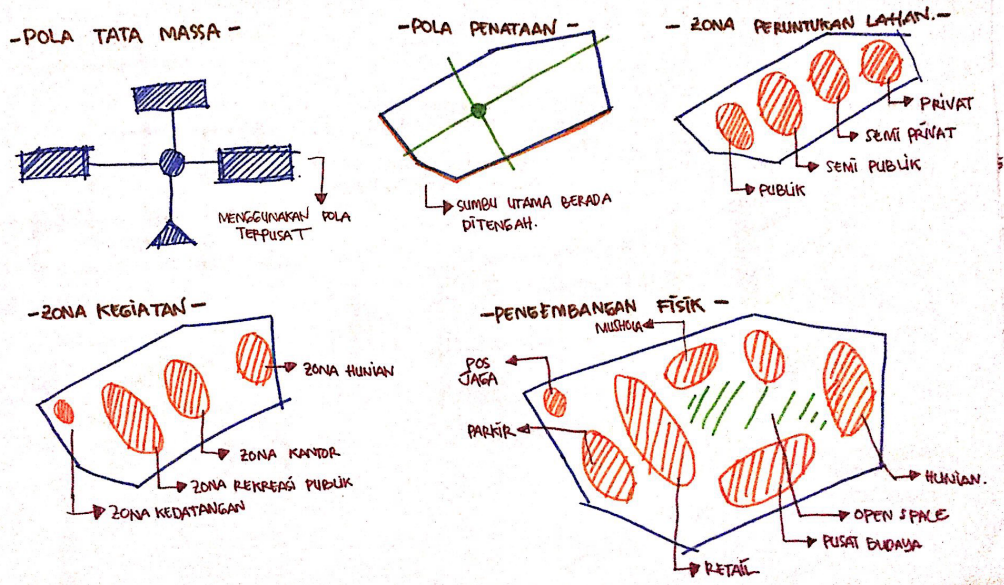 -POLA TATA MASSA-
MENGGUNAKAN POLA
TERPUSAT
-POLA PENATAAN-
SUMBU UTAMA BERADA
DITENGAH.
- ZONA PERUNTUKAN LAHAN.-
PRIVAT
SEMI PRIVAT
SEMI PUBLIK
PUBLIK
-ZONA KEGIATAN-
ZONA HUNIAN
ZONA KANTOR
ZONA REKREASI PUBLIK
ZONA KEDATANGAN
-PENGEMBANGAN FISIK-
MUSHOLA
POS
JAGA
PARKIR
HUNIAN.
OPEN SPACE
PUSAT BUDAYA
RETAIL